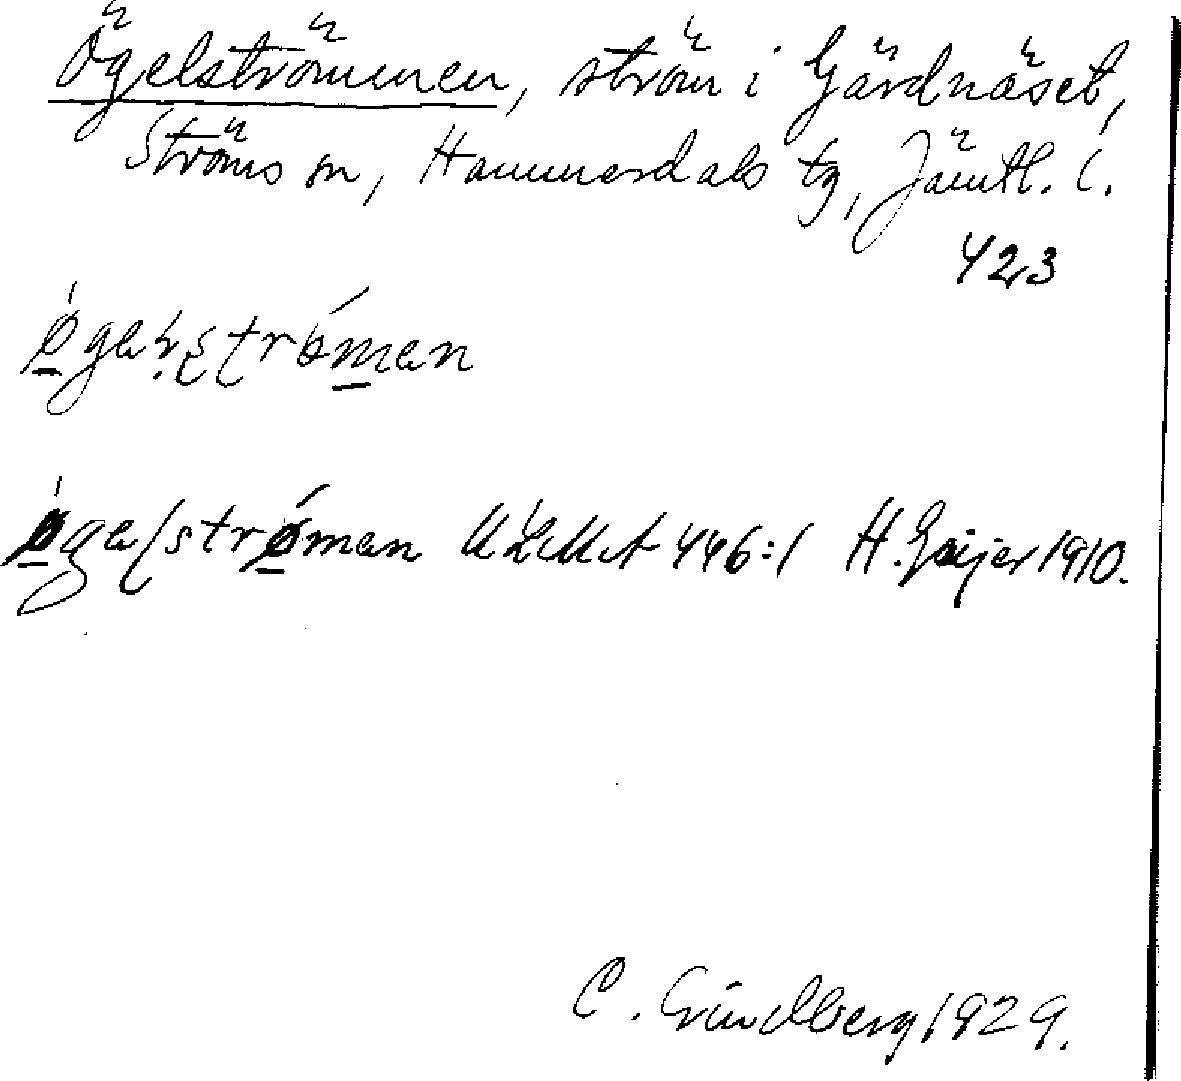 Ögelströmmen, ström i Gärdnäset,
Ströms sn, Hammerdals tg, Jämtl. l.
423
strö́man
strǿman ULMA 446:1 H. Geijer 1910.
C. Lindberg 1929.